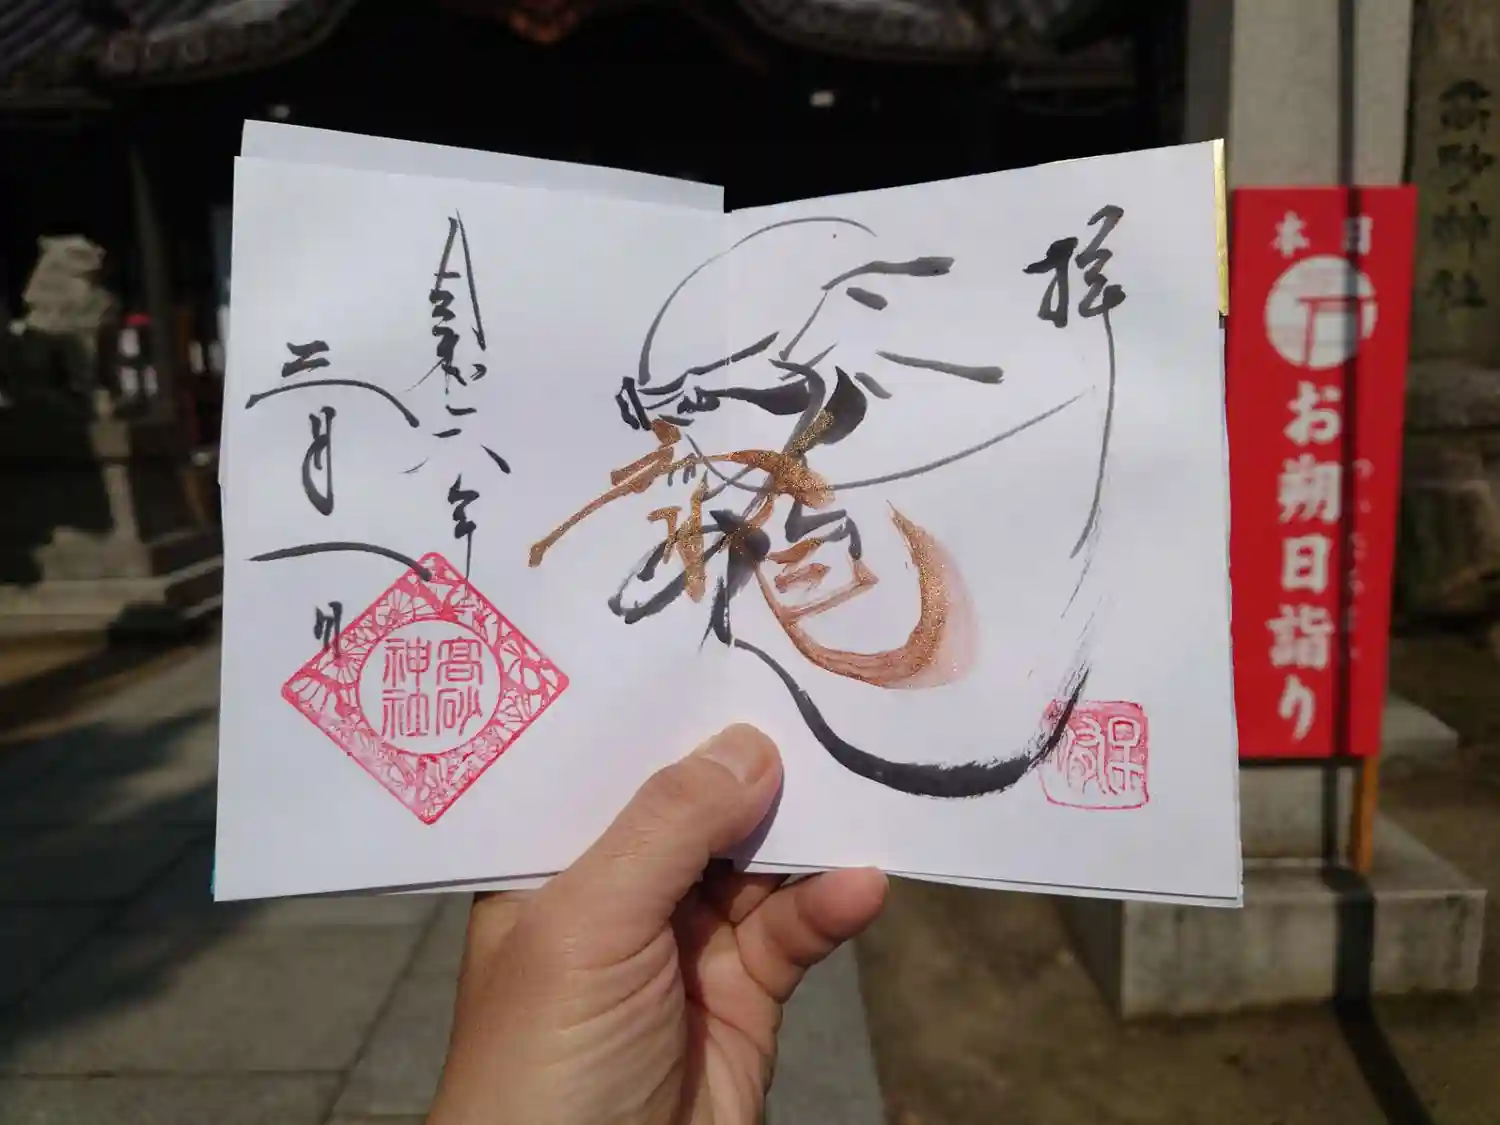 拝
龍
令和六年
三月一日
高砂
神社
本日
お朔日詣り
高砂神社